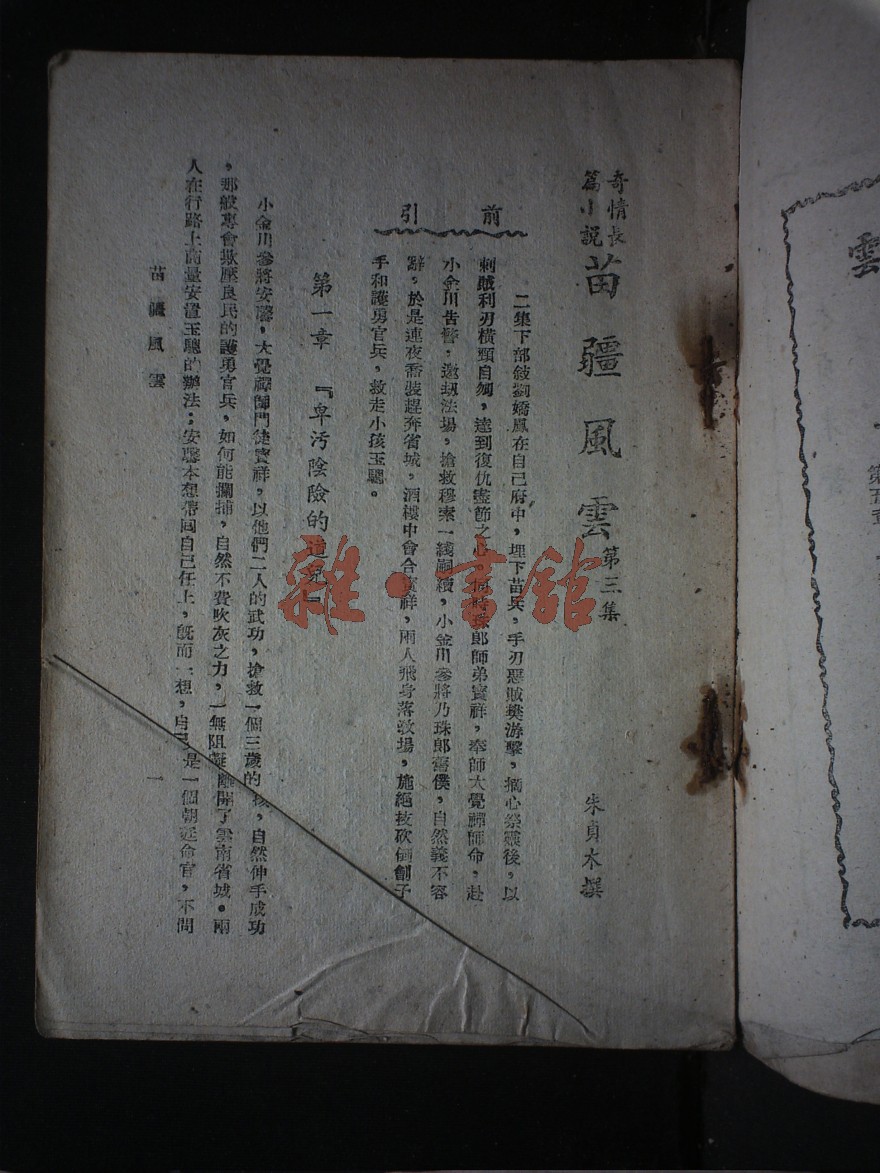 奇情長
篇小說
苗疆風雲
第三集
朱貞木撰
前引
二集下部敍劉嬌鳳在自己府中，埋下苗兵，手刃惡賊樊游擊，摘心祭靈後，以
刺賊利刃橫頸自刎，達到復仇盡節之心，同時珠郎師弟寳祥，奉師大覺禪師命，赴
小金川告警，邀刼法場，搶救穆索一綫嗣續，小金川參將乃珠郎舊僕，自然義不容
辭，於是連夜喬裝趕奔省城，酒樓中會合寳祥，兩人飛身落敎場，施絕技砍倒劊子
手和護勇官兵，救走小孩玉驄。
第一章　『卑汚陰險的道兒』
小金川參將安馨，大覺禪師門徒寳祥，以他們二人的武功，搶救一個三歲的孩，自然伸手成功
，那般專會欺壓良民的護勇官兵，如何能攔捕，自然不費吹灰之力，一無阻礙離開了雲南省城。兩
人在行路上商量安置玉驄的辦法；安馨本想帶囘自己任上，旣而一想，自己是一個朝廷命官，不問
苗疆風雲
一
雜·書館
雲
第五章